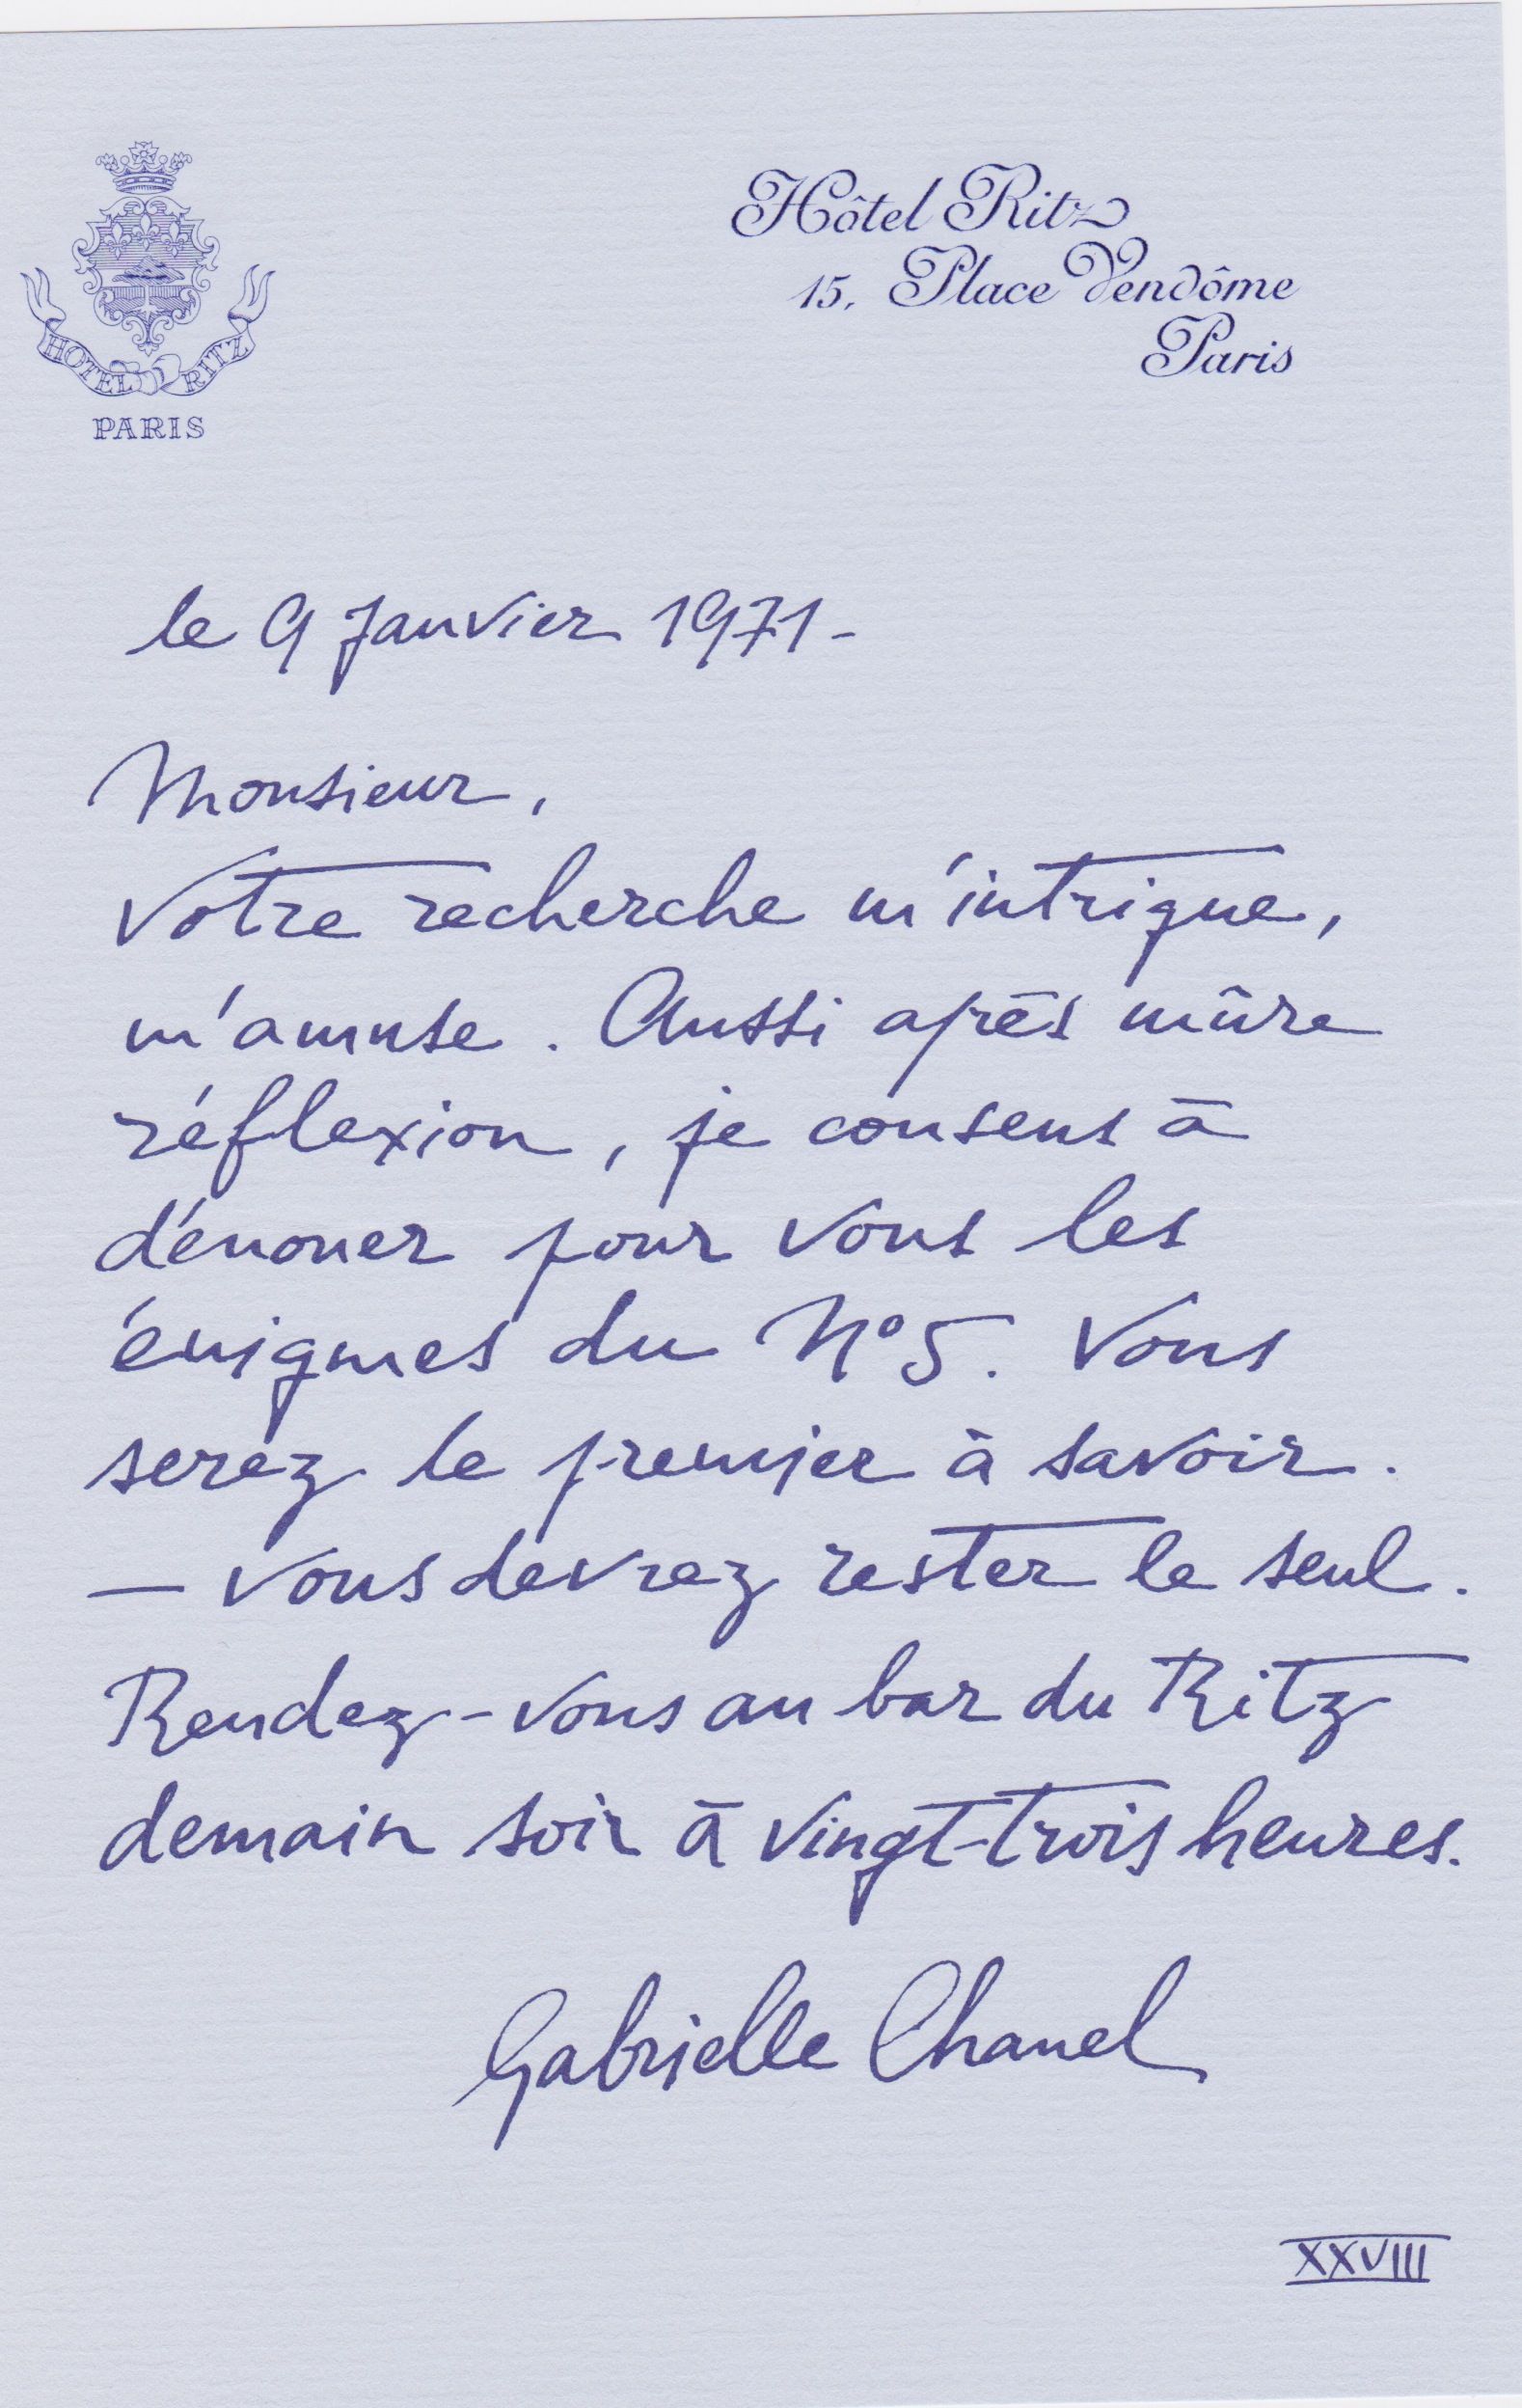 HOTEL RITZ
PARIS
Hôtel Ritz
15, Place Vendôme
Paris
le 9 Janvier 1971-
Monsieur,
Votre recherche m'intrigue,
m'amuse. Aussi après mûre
réflexion, je consens à
dénouer pour vous les
énigmes du N°5. Vous
serez le premier à savoir.
— Vous devrez rester le seul.
Rendez-vous au bar du Ritz
demain soir à vingt-trois heures.
Gabrielle Chanel
XXVIII